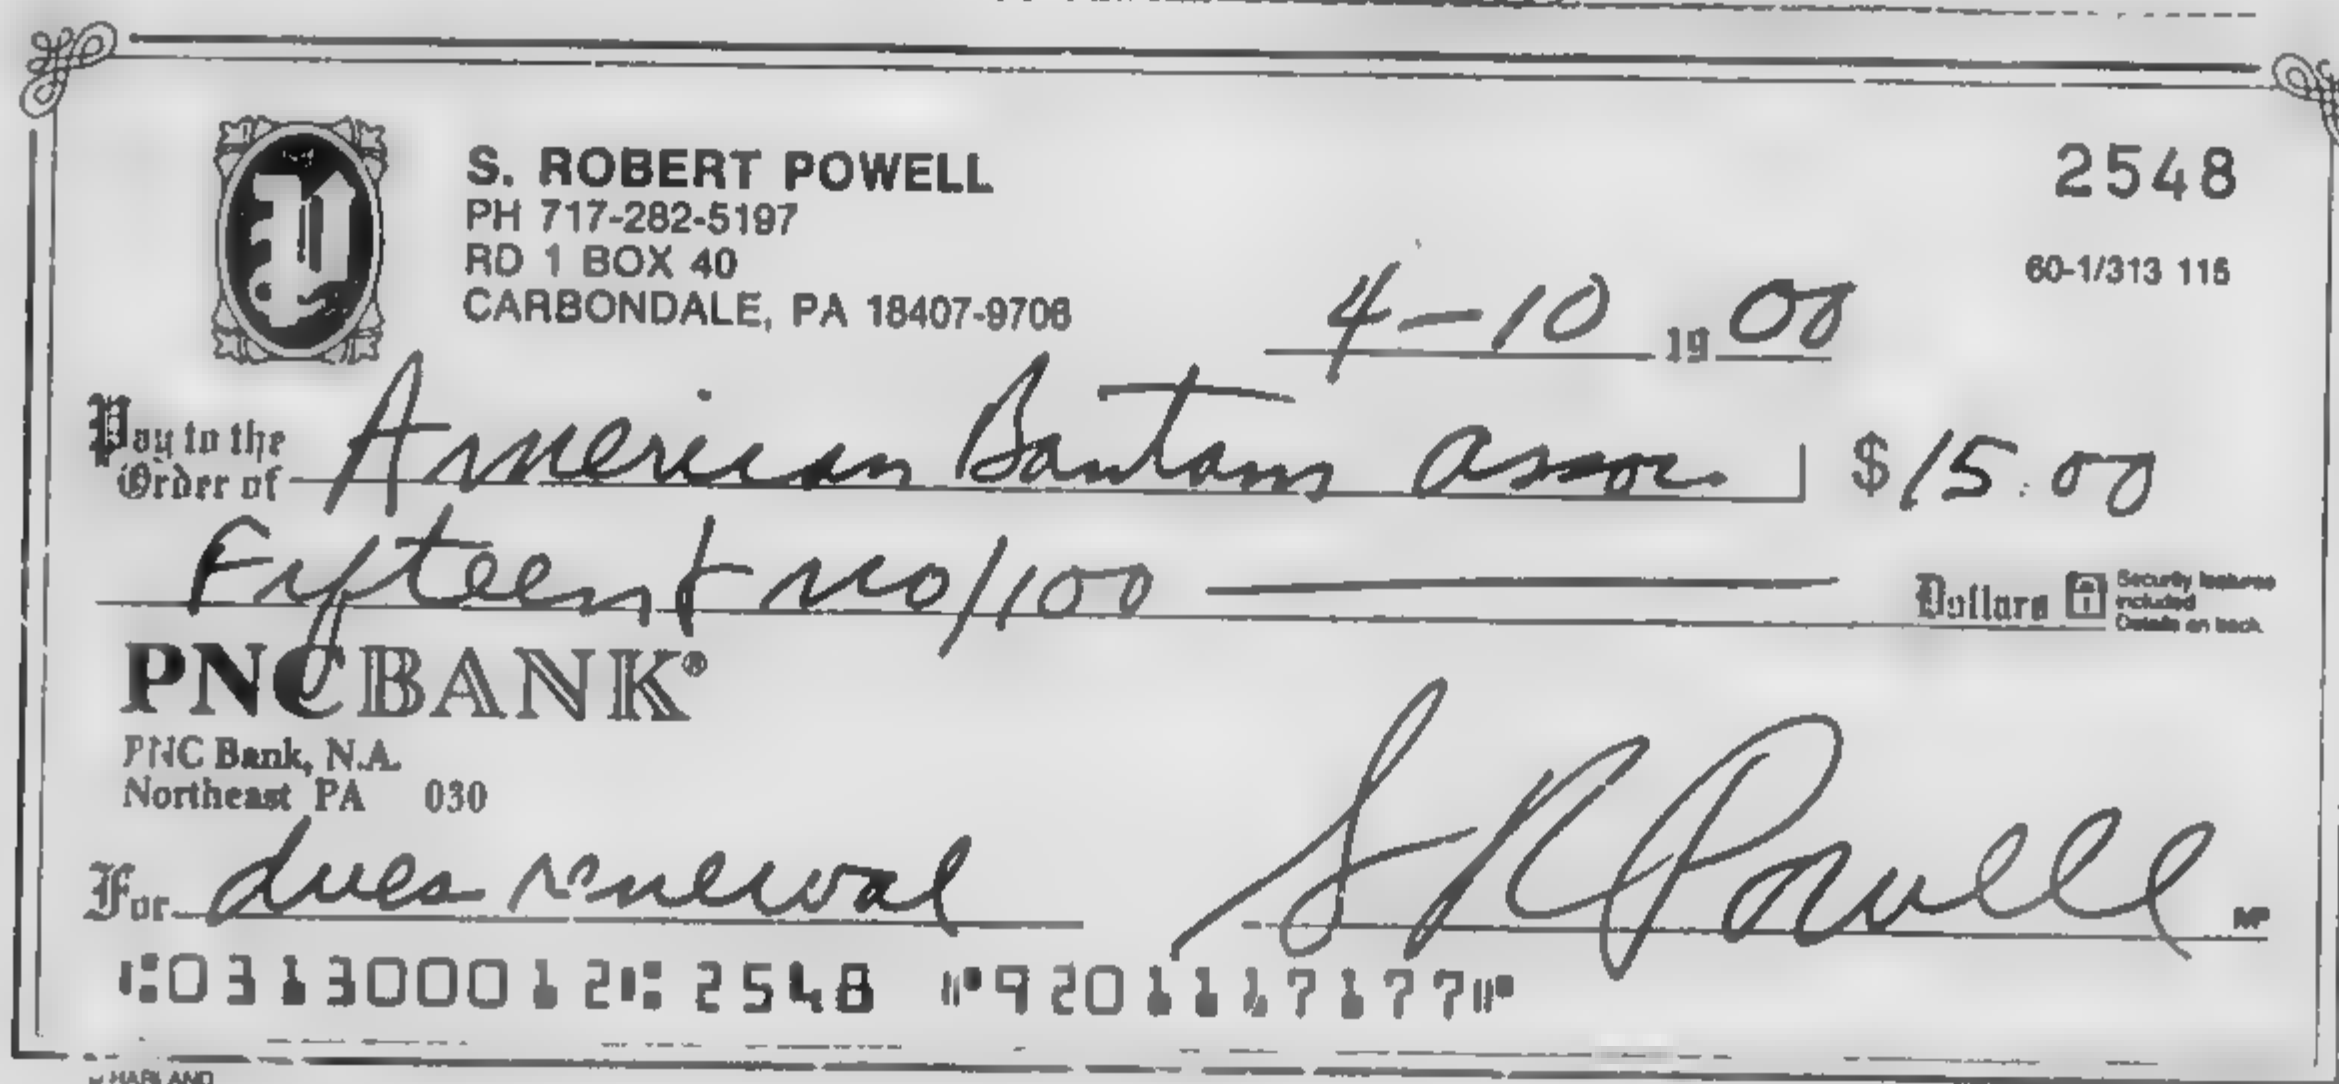 S. ROBERT POWELL
2548
PH 717-282-5197
RD 1 BOX 40
60-1/313 115
CARBONDALE, PA 18407-9706
4-10 19 00
Pay to the Order of American Bantam Assoc $ 15.00
Fifteen + no/100 Dollars
Security features included Details on back.
PNCBANK®
PNC Bank, N.A.
Northeast PA 030
For dues renewal S R Powell MP
⑆031300012⑆ 2548 ⑈9201117177⑈
HARLAND